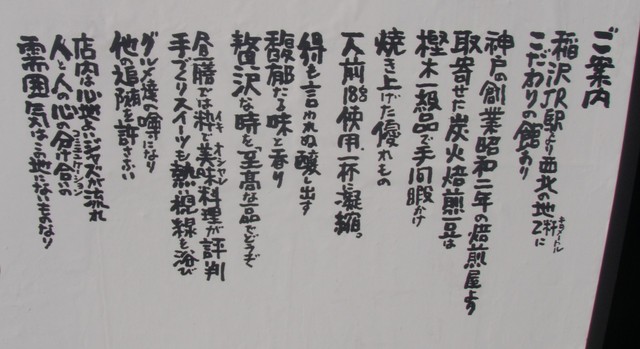 ご案内
稲沢JR駅より西北の地粁2に
キロメートル
こだわりの館あり
神戸の創業昭和二年の焙煎屋より
取寄せた炭火焙煎豆は
樫木一級品で手間暇かけ
焼き上げた優れもの
一人前18g使用一杯に凝縮。
得も言われぬ醸し出す
馥郁たる味と香り
贅沢な時を「至高な品でどうぞ
昼膳では粋と美味料理が評判
イキ オーシャル
手づくりスイーツも熱視線を浴び
グルメ達の噂になり
他の追随を許さない
店内は心地よいジャズが流れ
人と人の心の分け合いの
コミニュケーション
雰囲気はこ地にないさなり